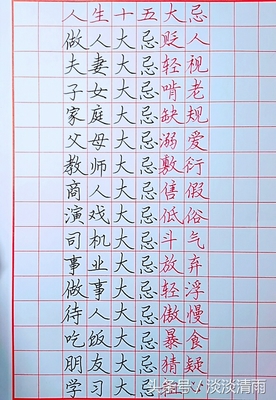 人生十五大忌
做人大忌贬人
夫妻大忌轻视
子女大忌啃老
家庭大忌缺规
父母大忌溺爱
教师大忌敷衍
商人大忌售假
演戏大忌低俗
司机大忌斗气
事业大忌放弃
做事大忌轻浮
待人大忌傲慢
吃饭大忌暴食
朋友大忌猜疑
学习大忌
头条号/淡淡清雨